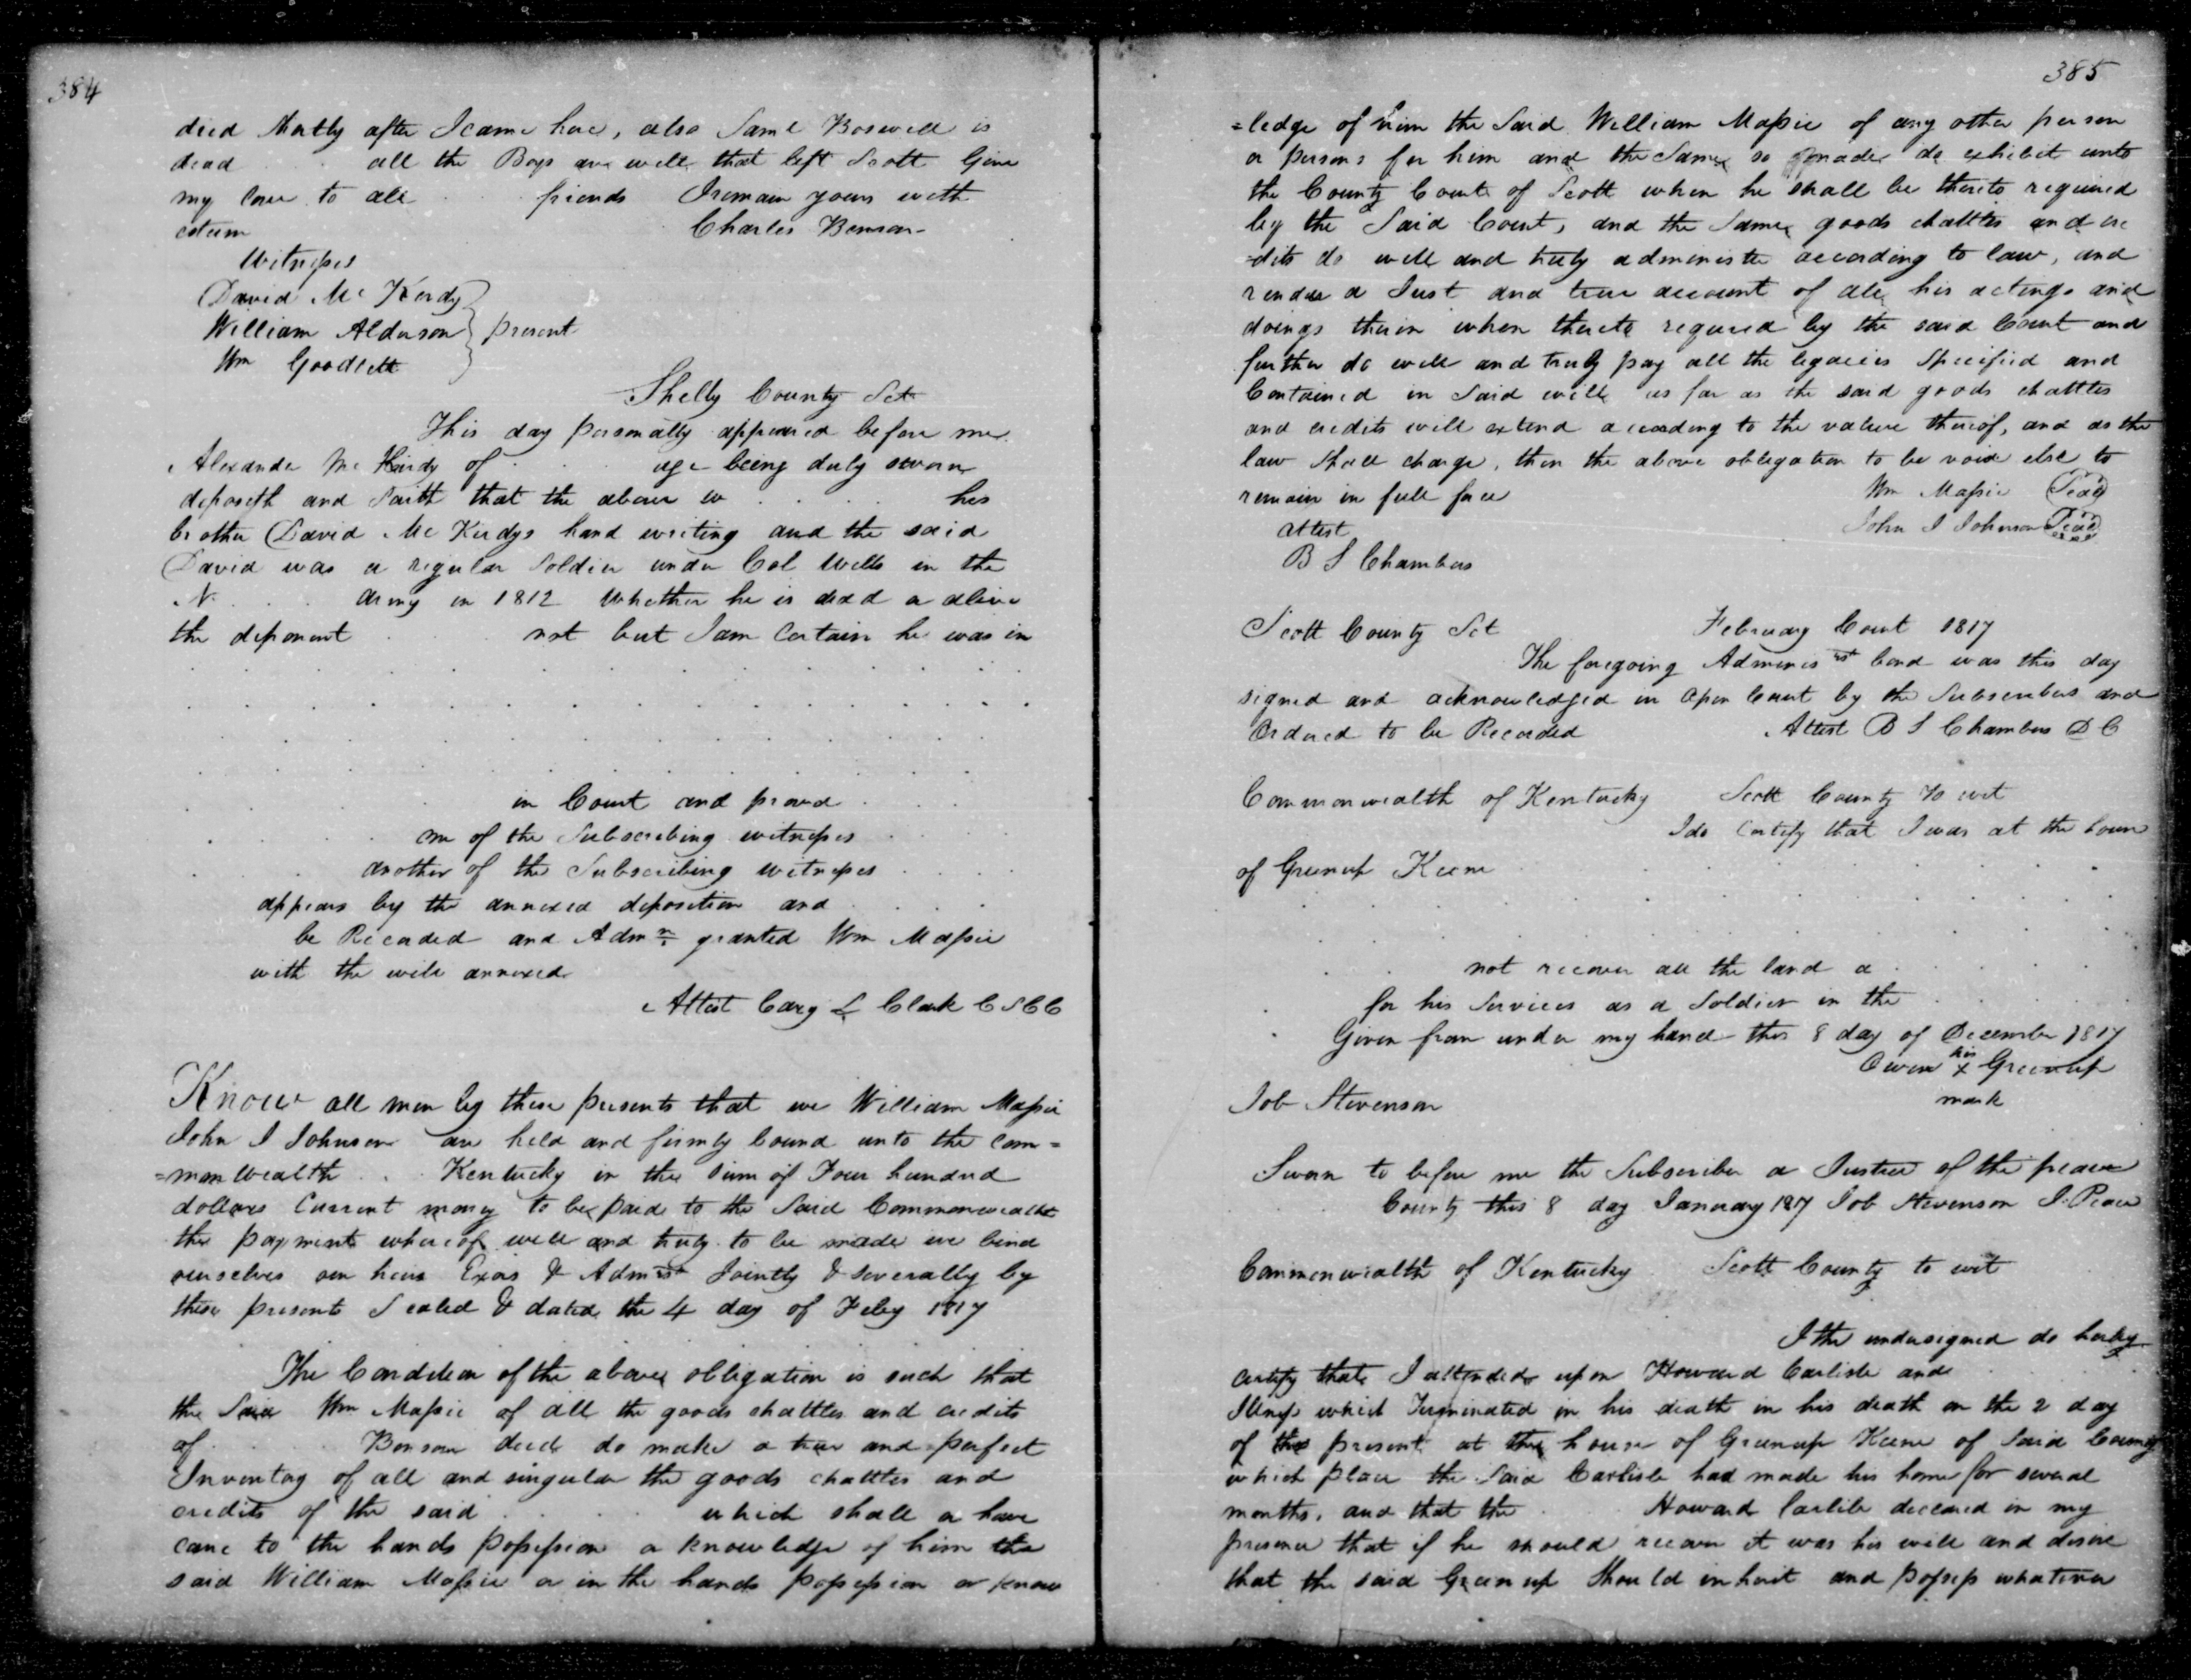 384
died shortly after I came here, also Saml Boswell is
dead . . all the Boys are well that left Scott Give
my love to all . . . friends I remain yours with
esteem Charles Benson
Witnesses
David Mc Kerdy
William Alderson } present
Wm Goodlett
Shelby County Sct
This day personally appeared before me
Alexander Mc Kirdy of . . . age being duly sworn
deposeth and Saith that the above w . . . . his
brother David Mc Kirdys hand writing and the said
David was a regular Soldier under Col Wells in the
N. . . . army in 1812 Whether he is dead or alive
the deponent . . . not but I am Certain he was in
in Court and proved . . .
one of the Subscribing witnesses . . . .
another of the Subscribing witnesses . . . .
appears by the annexed deposition and . . . .
be Recorded and Admn granted Wm Massie
with the will annexed
Attest Cary L Clark C S C C
Know all men by these presents that we William Massie
John I Johnson are held and firmly bound unto the com=
=mon wealth . . Kentucky in the Sum of Four hundred
dollars Current money to be paid to the Said Commonwealth
the payment whereof well and truly to be made we bind
ourselves our heirs Exors & Admrs Jointly & Severally by
these presents Sealed & dated the 4 day of Feby 1817
The Condition of the above obligation is such that
the Said Wm Massie of all the goods chattles and credits
of . . . Benson decd do make a true and perfect
Inventory of all and singular the goods chattles and
credits of the said . . . . which shall or have
came to the hands possession or knowledge of him the
said William Massie or in the hands possession or know
385
=ledge of him the Said William Massie of any other person
or persons for him and the Same so made do exhibit unto
the County Court of Scott when he shall be thereto required
by the Said Court, and the Same goods chattles and cre
-dits do well and truly administer according to law, and
render a Just and true account of all his actings and
doings therein when thereto required by the said Court and
further do well and truly pay all the legacies Specified and
Contained in Said will as far as the said goods chattles
and credits will extend according to the value thereof, and as the
law Shall charge, then the above obligation to be void else to
remain in full force Wm Massie Seal
attest John I Johnson Seal
B S Chambers
Scott County Sct February Court 1817
The foregoing Adminis rst bond was this day
signed and acknowledged in Open Court by the Subscribers and
Ordered to be Recorded Attest B S Chambers D C
Commonwealth of Kentucky Scott County to wit
I do Certify that I was at the house
of Greenup Keene
not recover all the land a . . . .
for his Services as a Soldier in the . . . .
Given from under my hand this 8 day of December 1817
Owen his x mark Greenup
Job Stevenson
Sworn to before me the Subscriber a Justice of the peace
County this 8 day January 1817 Job Stevenson J. Peace
Commonwealth of Kentucky Scott County to wit
I the undersigned do hereby
certify that I attended upon Howard Carlisle and . . .
Illness which Terminated in his death in his death on the 2 day
of the present at the house of Greenup Keene of Said County
which place the Said Carlisle had made his home for several
months, and that the . . Howard Carlile declared in my
presence that if he should recover it was his will and desire
that the said Greenup Should inherit and possess whatever